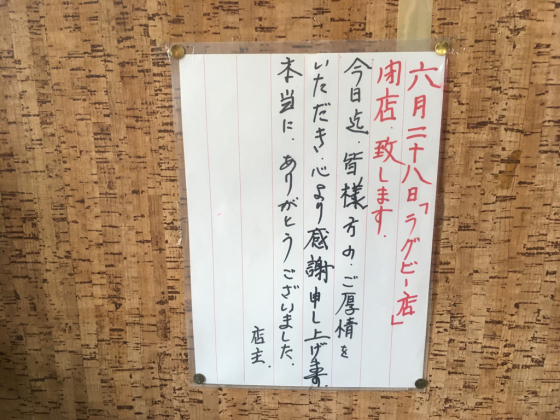 六月二十八日「ラグビー店」
閉店.致します.
今日迄.皆様方の.ご厚情を
いただき.心より感謝申し上げます.
本当に.ありがとうございました.
店主.